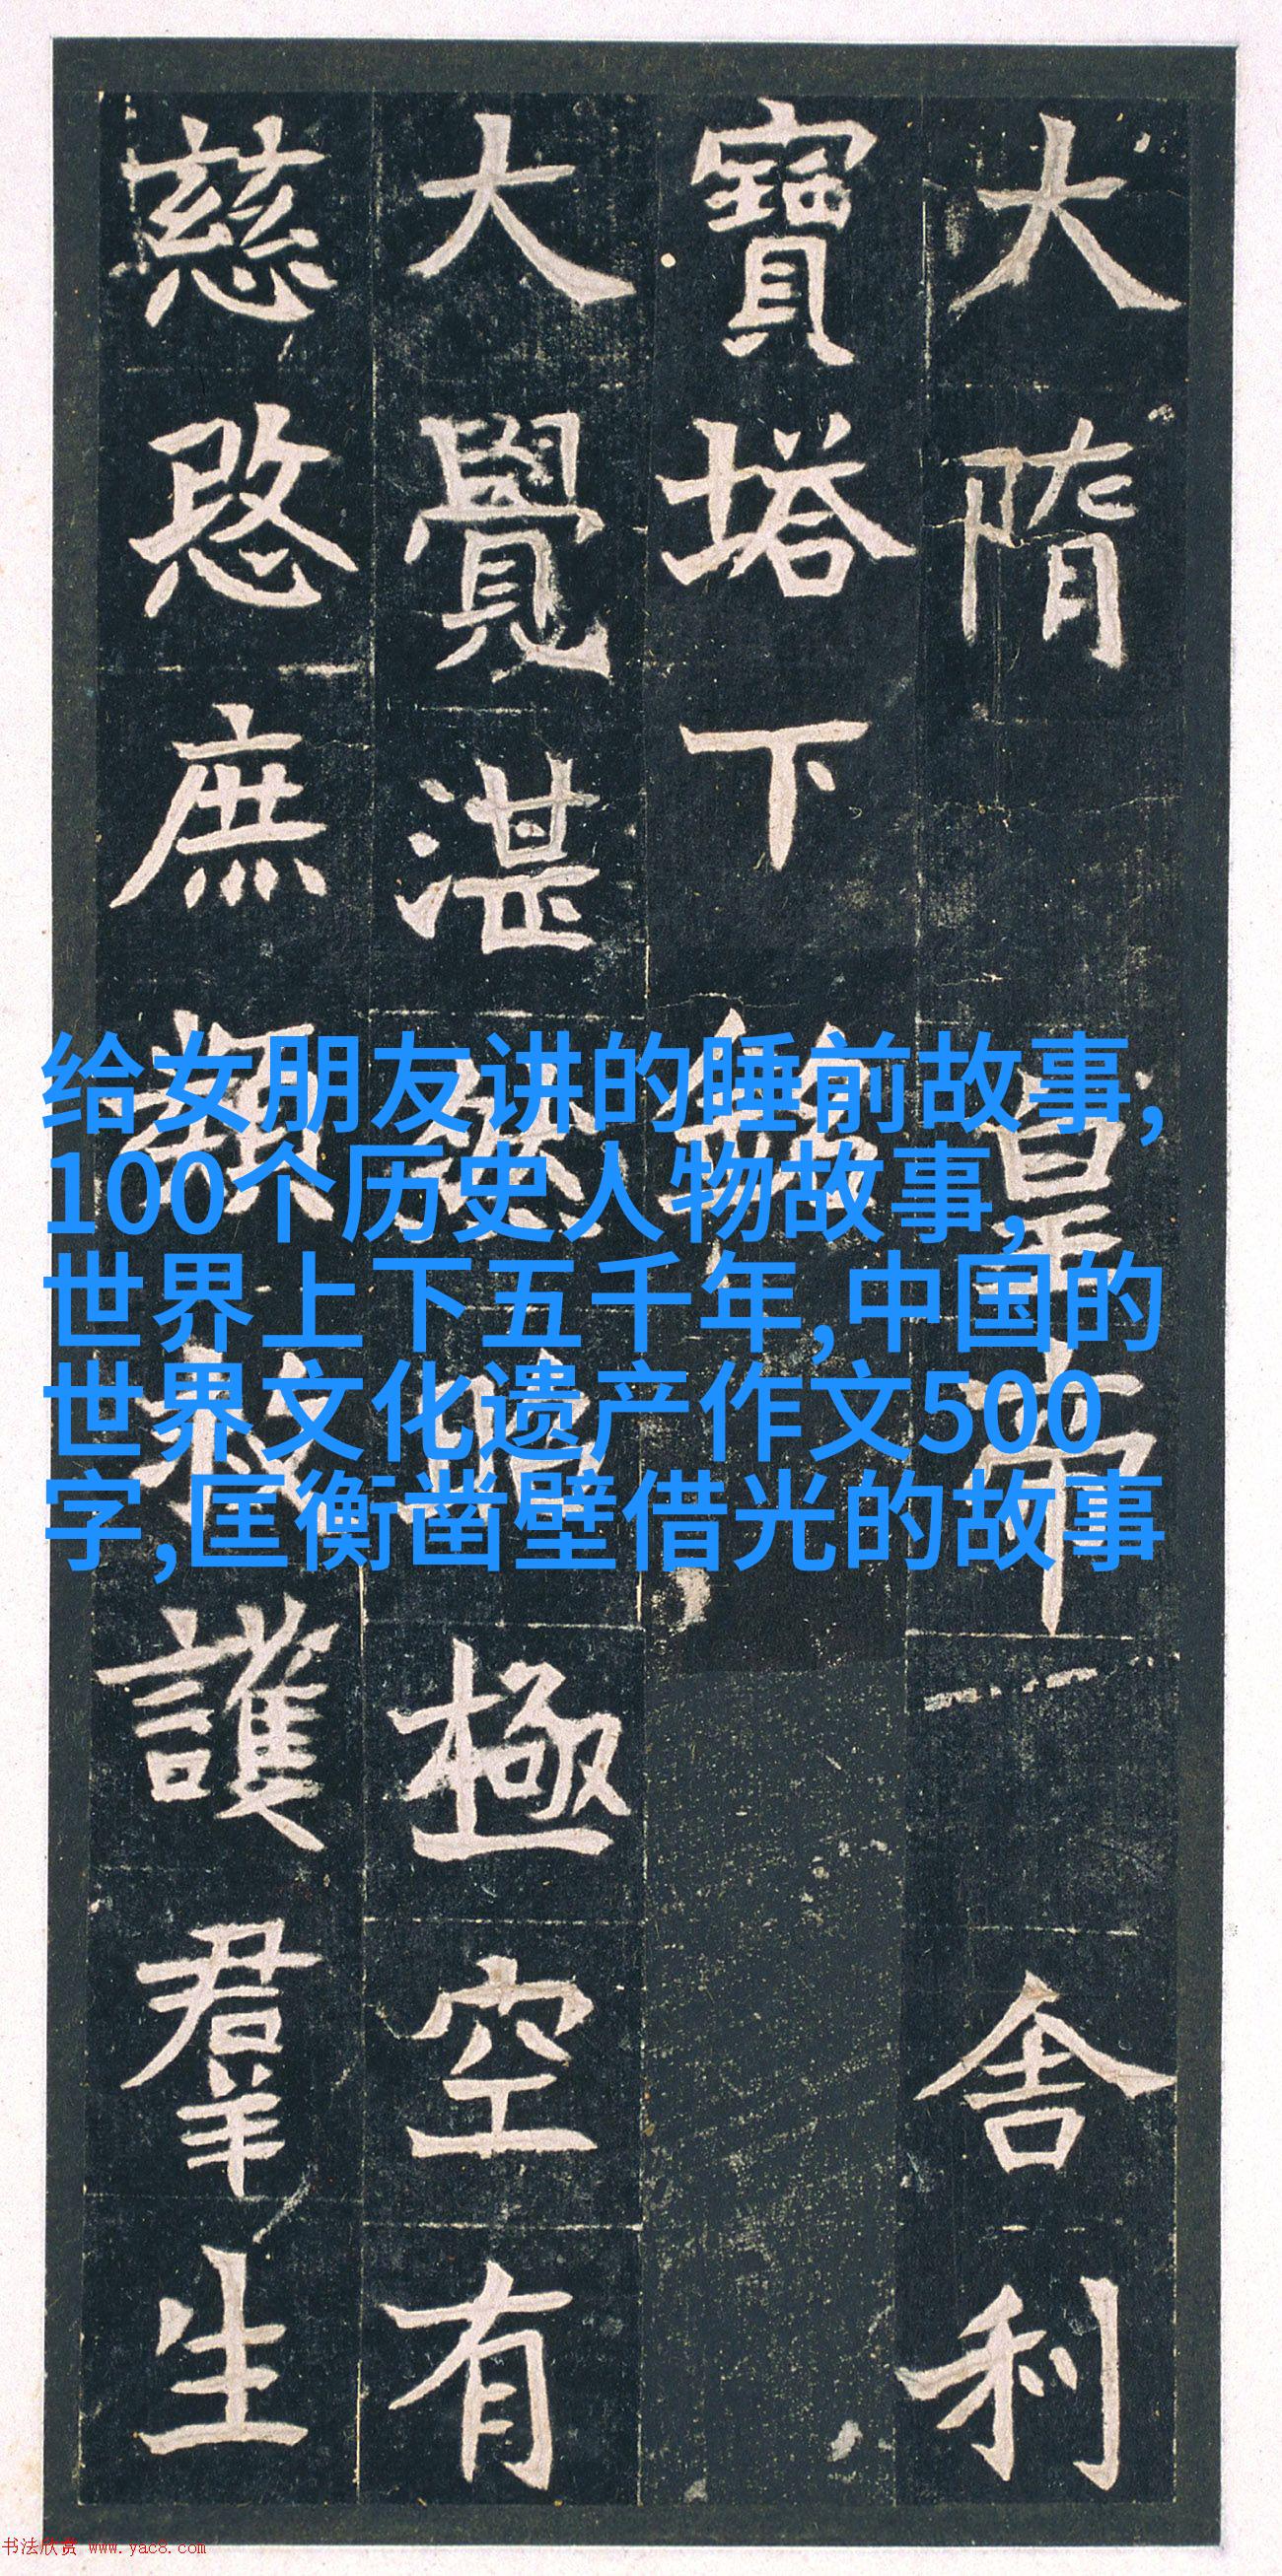 大隋皇帝舍利
寶塔下銘
大覺湛然昭極空有
慈愍庶類救護羣生
给女朋友讲的睡前故事,
100个历史人物故事,
世界上下五千年,中国的
世界文化遗产作文500
字,匡衡凿壁借光的故事
书法欣赏 www.yac8.com